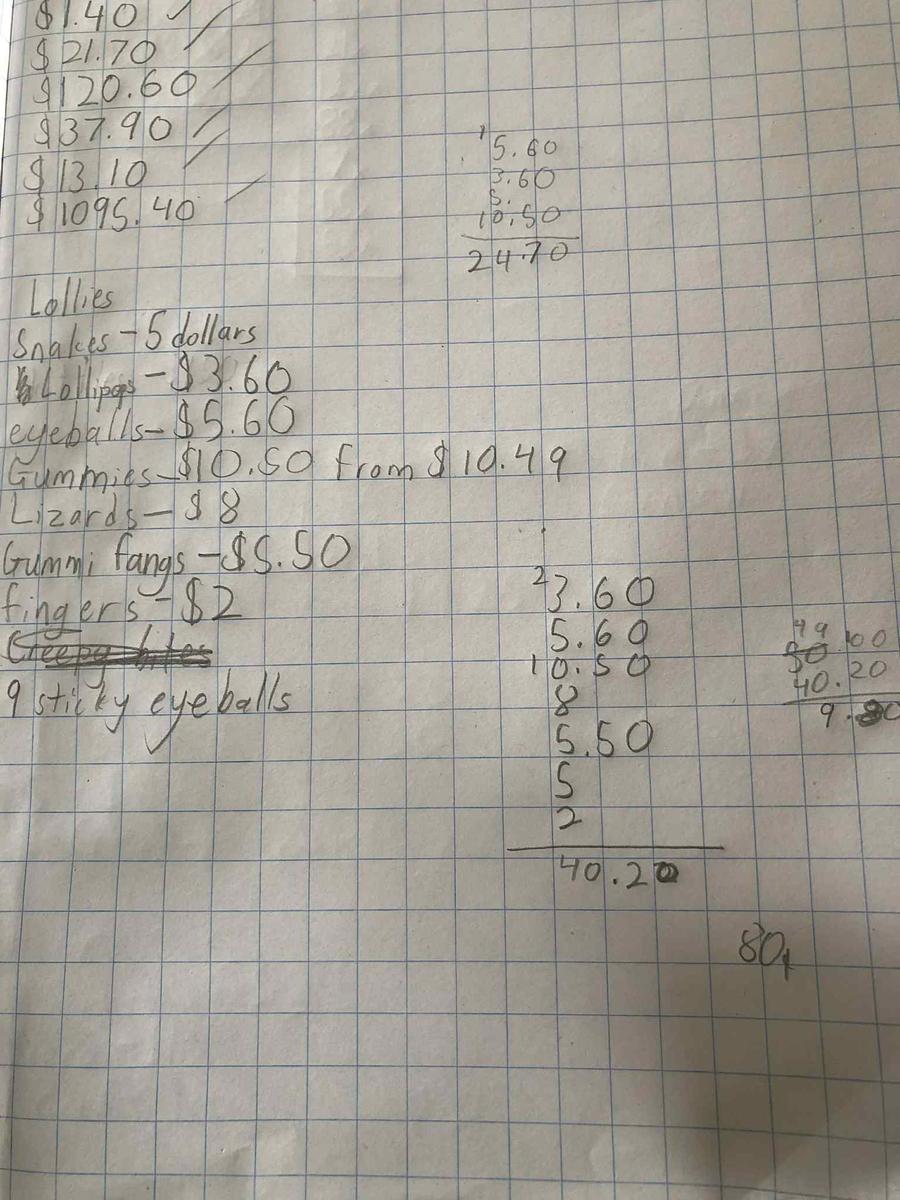 $1.40
$21.70
$120.60
$37.90
$13.10
$1095.40
1
5.60
3.60
5.
10.50
24.70
Lollies
Snakes - 5 dollars
Lollipops - $3.60
eyeballs - $5.60
Gummies - $10.50 from $10.49
Lizards - $8
Gummi fangs - $5.50
fingers - $2
Creepy bites
9 sticky eyeballs
2
3.60
5.60
10.50
8
5.50
5
2
40.20
49.100
50
40.20
9.80
80